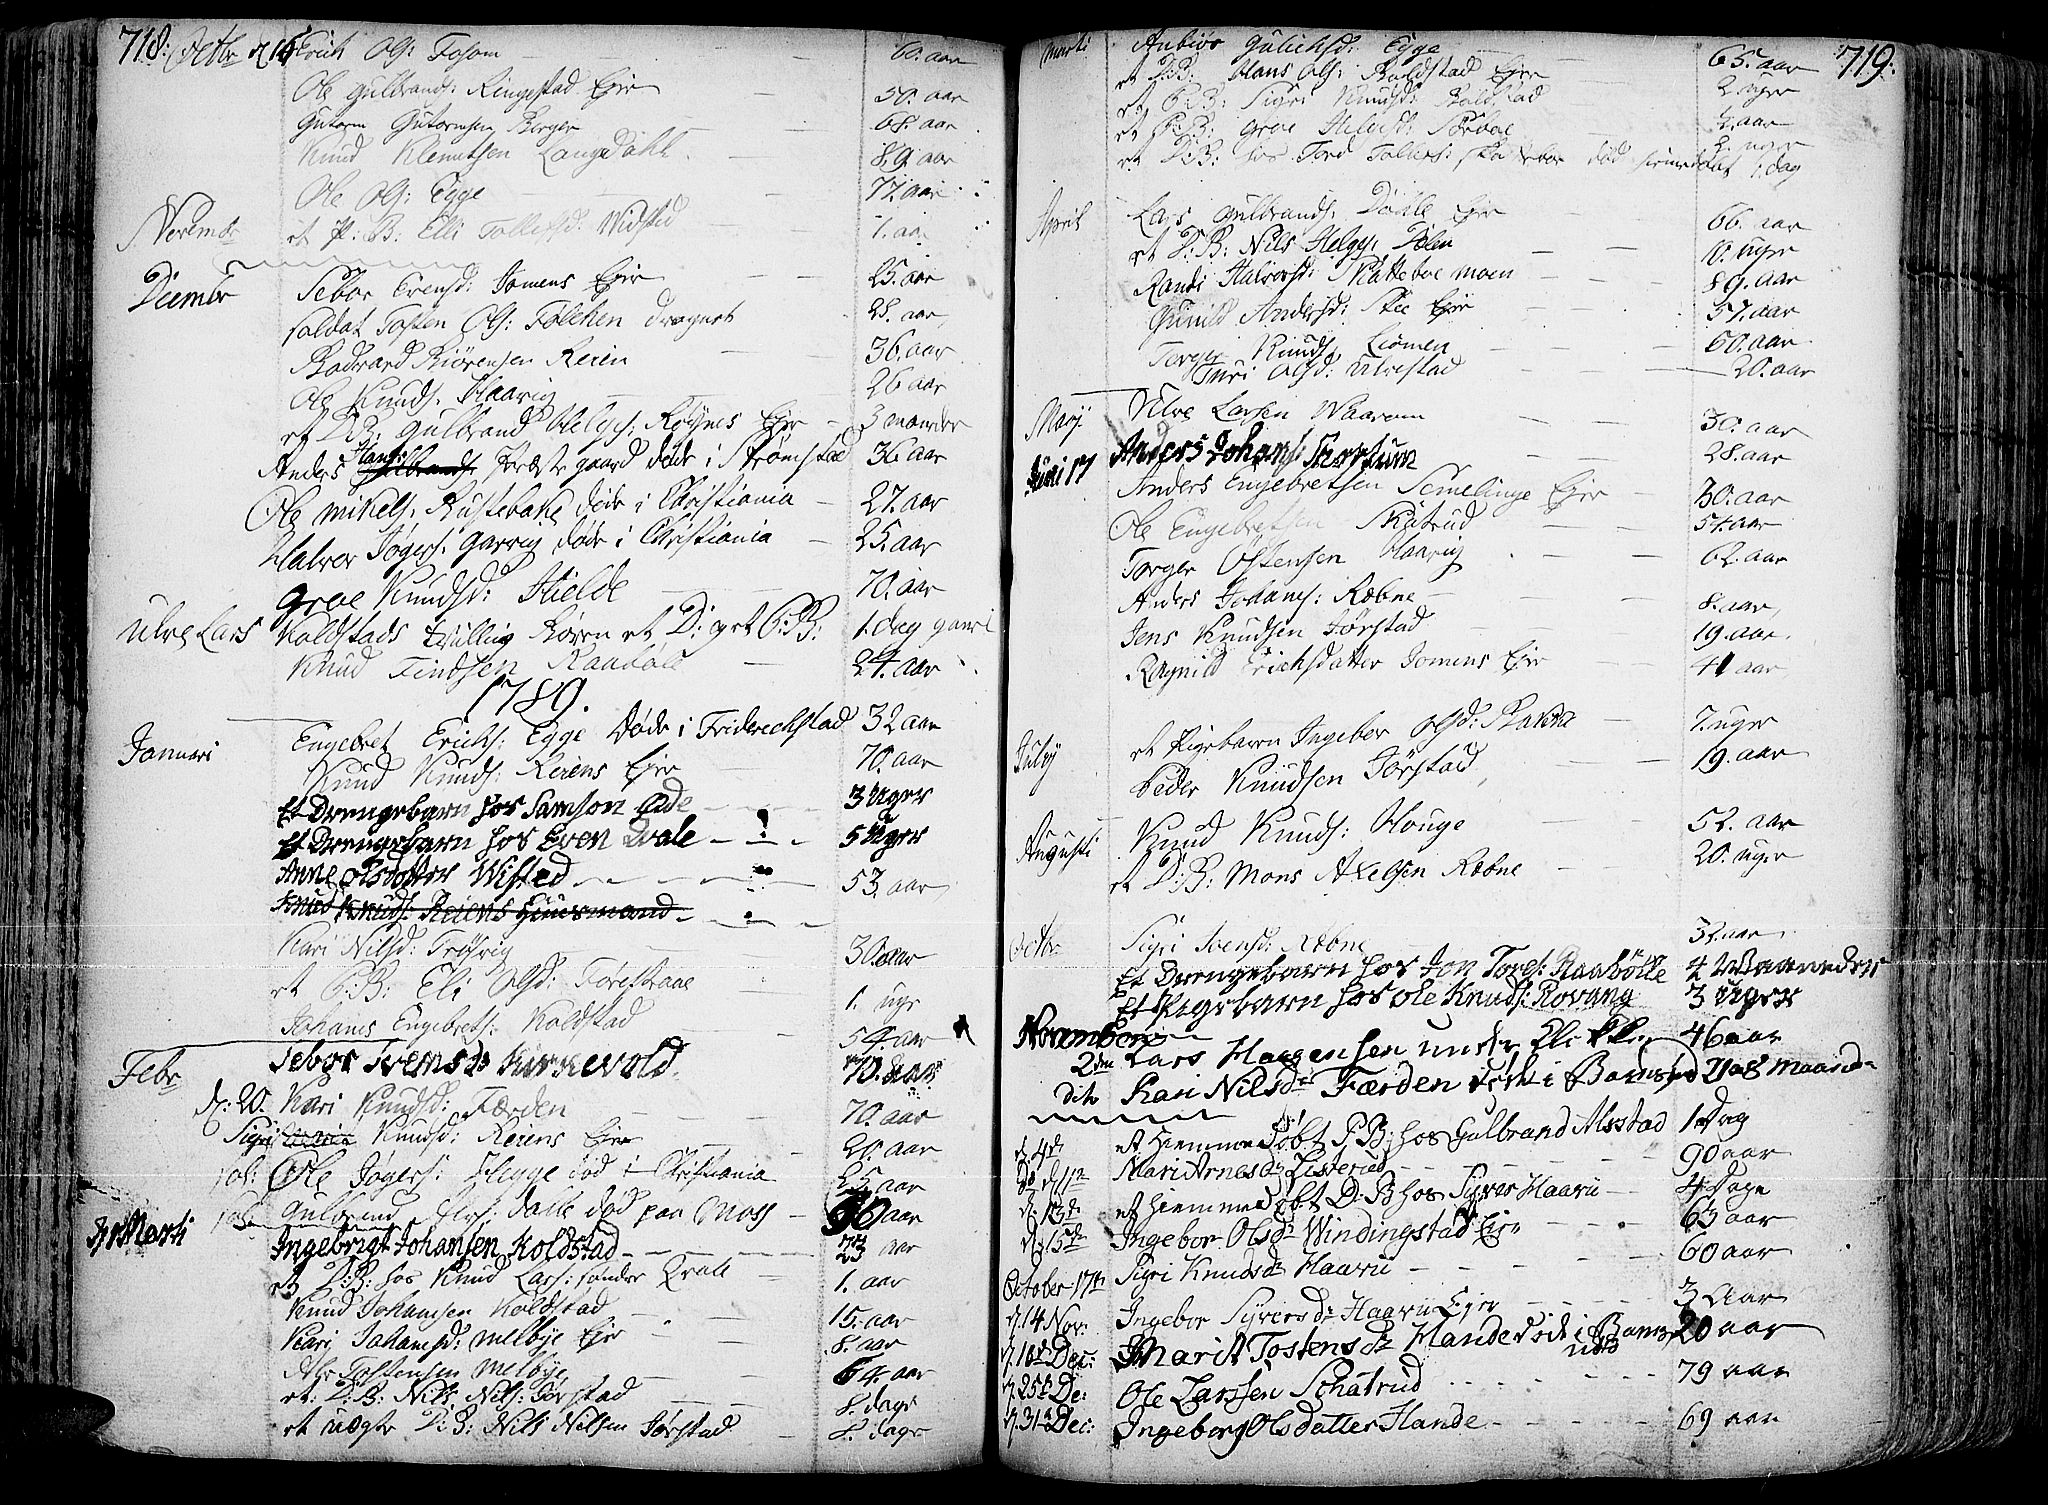 718: Octbr d 16 Erich Ols: Fosom 60. aar
Ole Gulbrands: Ringestad Eier 50. aar
Gutorm Gutormsen Berger 68. aar
Knud Klemitsen Langedahl. 89 aar
Ole Ols: Egge 77. aar
Novembr et P: B: Elli Tollefsd: Widsted 1. aar
Decembr Sebor Evensd: Jomens Eier 25. aar
soldat Tosten Ols: Dragnet 28. aar
Biörensen Reien 36. aar
Ole Knuds. Haarig 26 aar
et D:B: Gulbrand Helges: Röynes Eier 3 maander
Anders Hans: Præstegaard döde i Strömstad 36 aar
Ole Mikels: Rustebake döde i Christiania 27. aar
Halvor Jögers: Garvig döde i Christiania 25. aar
Groe Knudsd: Hielde 70. aar
Ulve Lars Koldstads tvilling Bören et D: og et P:B: 1. dag gaml
Knud Findsen Raaböle 24. aar
1789.
Januari Engebret Erichs: Egge döde i Friderechstad 32 aar
Knud Knuds: Reiens Eier 70. aar
Et Drengebarn hos Samson Øde 3 Uger
Et Drengebarn hos Even Qvale 5 Uger
Anne Olsdotter Wisted 53. aar
Knud Knuds: Reiens Huusmand
Kari Nilsd: Tröhrig 30. aar
et P:B: Eli Olsd: Förestrane 1. uge
Johanes Engebrets: Koldstad 54 aar
Febr Sebor Evensdr Kirkevold. 70. aar
d: 20. Kari Knudsd: Færden 70. aar
Sigri Knudsd: Reiens Eier 20. aar
sol: Ole Jögers: Hegge död i Christiania 25 aar
sol: Gulbrand Ivers: Dalle död paa Moss 30 aar
Marti Ingebrigt Johansen Koldstad 23 aar
et D:B: hos Knud Lars: söndre Qvale 1. aar
Knud Johansen Koldstad 15. aar
Kari Johansd: Melbye Eier 8. aar
Tostensen Melbye 64. aar
et: D:B: Nils Nils: Jörstad 8. dage
et uægte D:B: Nils Nilsen Jörstad 8. dage
719:
Marti Anbiör Gulichsd: Egge 65. aar
et D:B: Hans Ols: Koldstad Eier 2. uger
et P:B: Sigri Knudsd: Koldstad ½. aar
et P:B: Groe Helgesd: Sörboe 2. uger
et D:B: hos Tord Tollefs: Skattebœ död hiemedöbt 1. dag
April Lars Gulbrands: Döhle Eier 66. aar
et D:B: Nils Helges: Dölen 10. uger
Randi Halvorsd: Skatteboe moen 89. aar
Gunild Andersd: Skee Eier 57. aar
Torger Knuds: Liömen 60. aar
Turi Olsd: Ulvestad 20. aar
Maÿ Ulve Larsen Waarum 30. aar
Juni 17 Anders Johans: Thortum 28. aar
Anders Engebretsen Semelinge Eier 30. aar
Ole Engebretsen Skatrud 54. aar
Torger Östensen Haarig 62. aar
Anders Johans: Ræbne 8. aar
Jens Knudsen Jörstad 19. aar
Ragnild Erichsdatter Jomens Eier 41 aar
Julÿ et Pigebarn Ingebor Olsd: Bakka 7. uger
Peder Knudsen Jörstad 19. aar
Augusti Knud Knuds: Houge 52. aar
et D:B: Mons Axelsen Ræbne 20. uger
Octbr Sigri Svensd: Ræbne 32. aar
Et Drengebarn hos Jon Tores: Raaböle 4 Maaneder
Et Pigebarn hos Ole Knuds: Rovang 3 Uger
November 2den Lars Haagensen under Klekken 46 aar
dito Kari Nilsdr Færden död i Barnsöd 2 Maaneder
d. 4de et Hiemmedöbt P:B: hos Gulbrand Alsstad 1 Dag
d 11te Mari Arnesdr Listerud 90 aar
d: 13de et Hiemmedöbt D:B hos Syver Haarii 4 Dage
d: 15de Ingebor Olsdr Windingstad Eier 63 aar
October 17de Sigri Knudsdr Haarii 60 aar
d. 14 Nov: Ingebor Syversdr Haarii Eier 3 Aar
d. 16de Dec: Marit Tostensdr Hande död i Barnsnöd 20 aar
d. 25de De: Ole Larssen Schatrud 79 aar
d. 31te Dec: Ingeborg Olsdatter Hande 69 aar